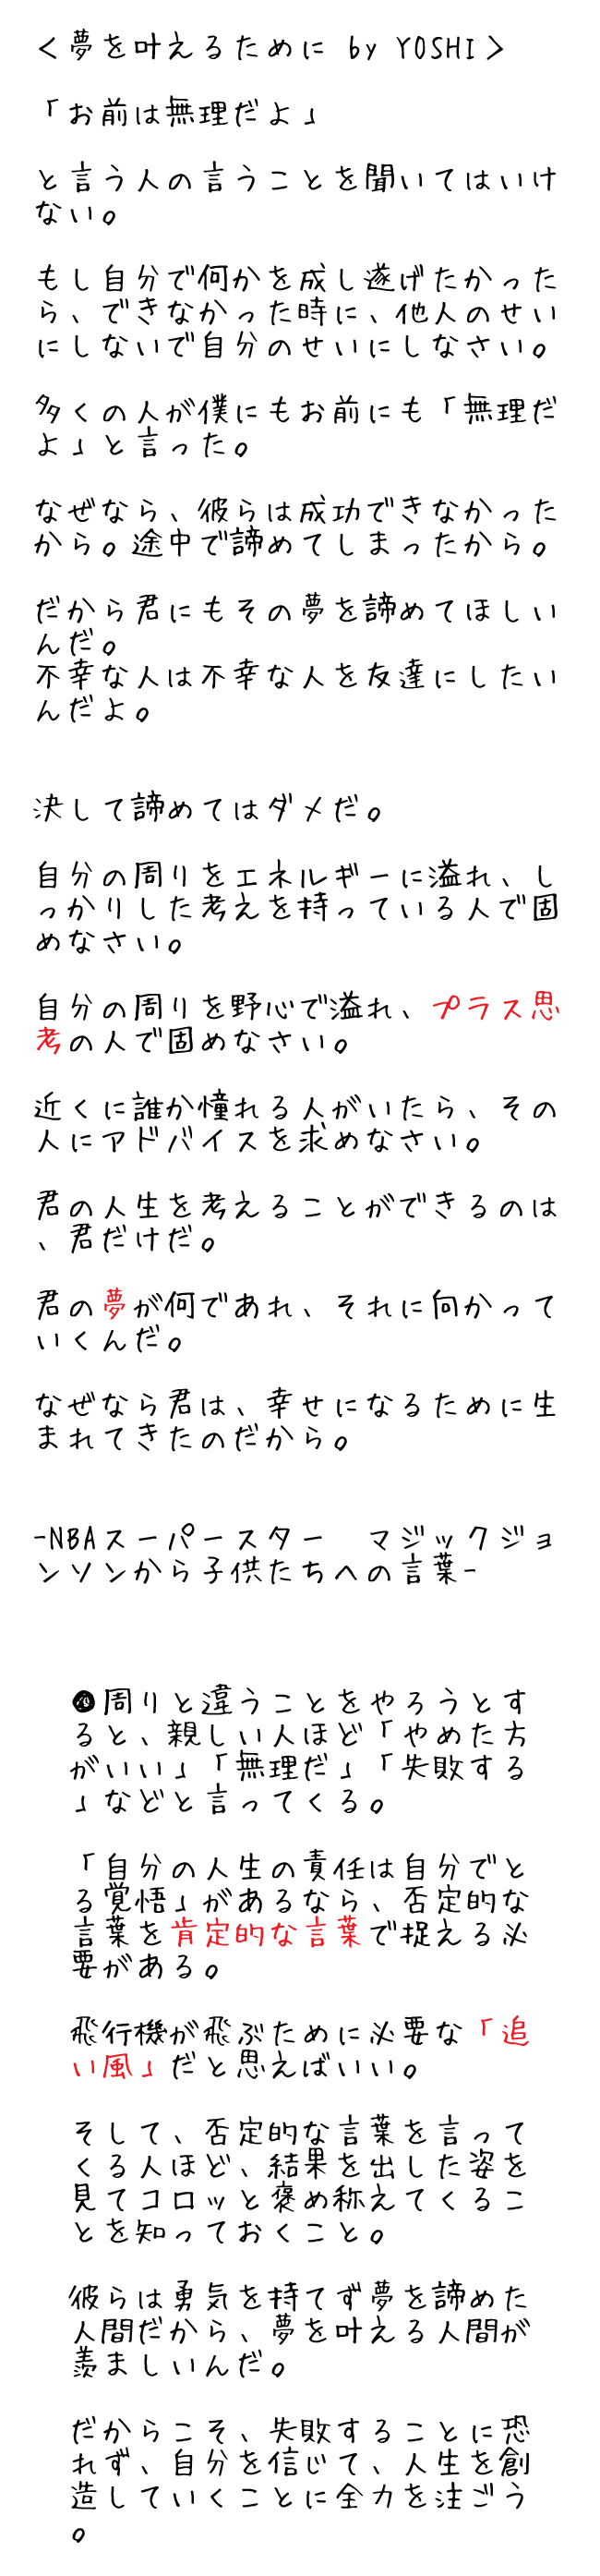 ＜夢を叶えるために by YOSHI＞
「お前は無理だよ」
と言う人の言うことを聞いてはいけ
ない。
もし自分で何かを成し遂げたかった
ら、できなかった時に、他人のせい
にしないで自分のせいにしなさい。
多くの人が僕にもお前にも「無理だ
よ」と言った。
なぜなら、彼らは成功できなかった
から。途中で諦めてしまったから。
だから君にもその夢を諦めてほしい
んだ。
不幸な人は不幸な人を友達にしたい
んだよ。
決して諦めてはダメだ。
自分の周りをエネルギーに溢れ、し
っかりした考えを持っている人で固
めなさい。
自分の周りを野心で溢れ、プラス思
考の人で固めなさい。
近くに誰か憧れる人がいたら、その
人にアドバイスを求めなさい。
君の人生を考えることができるのは
、君だけだ。
君の夢が何であれ、それに向かって
いくんだ。
なぜなら君は、幸せになるために生
まれてきたのだから。
-NBAスーパースター　マジックジョ
ンソンから子供たちへの言葉-
●周りと違うことをやろうとす
ると、親しい人ほど「やめた方
がいい」「無理だ」「失敗する
」などと言ってくる。
「自分の人生の責任は自分でと
る覚悟」があるなら、否定的な
言葉を肯定的な言葉で捉える必
要がある。
飛行機が飛ぶために必要な「追
い風」だと思えばいい。
そして、否定的な言葉を言って
くる人ほど、結果を出した姿を
見てコロッと褒め称えてくるこ
とを知っておくこと。
彼らは勇気を持てず夢を諦めた
人間だから、夢を叶える人間が
羨ましいんだ。
だからこそ、失敗することに恐
れず、自分を信じて、人生を創
造していくことに全力を注ごう
。